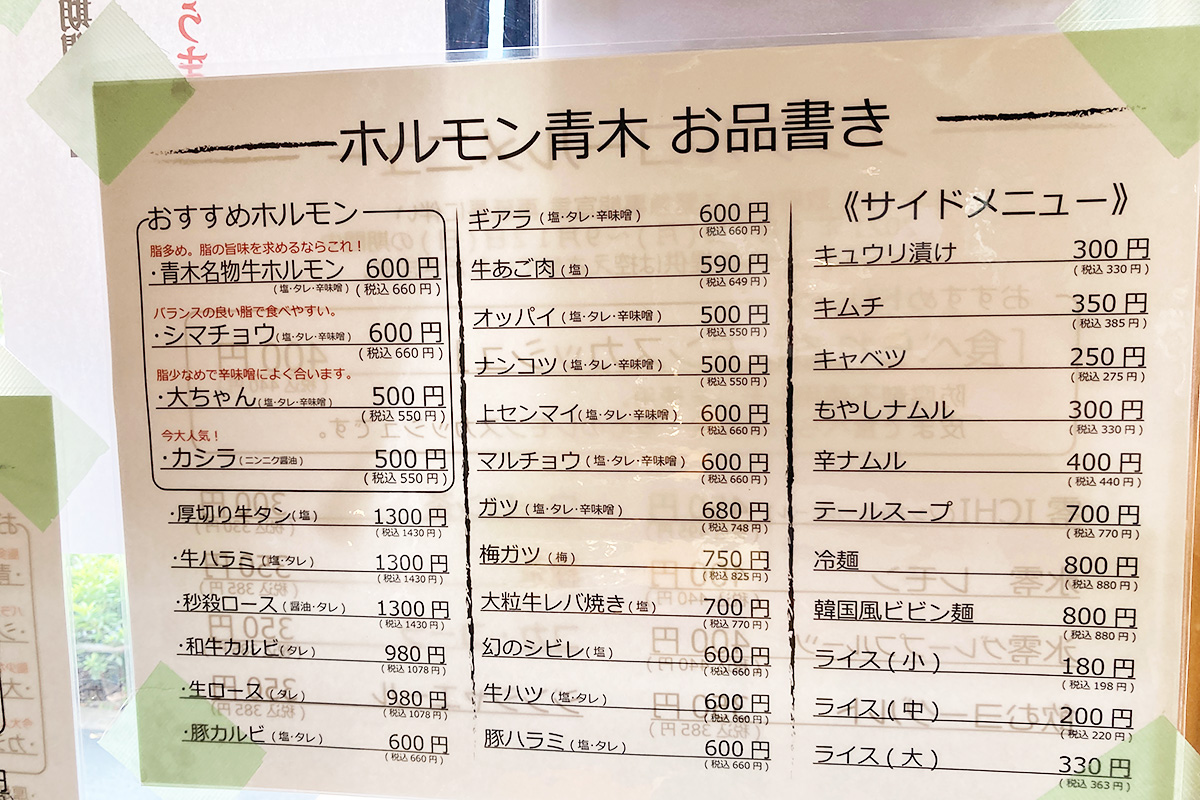 ホルモン青木 お品書き
おすすめホルモン
脂多め。脂の旨味を求めるならこれ！
・青木名物牛ホルモン 600円
(塩・タレ・辛味噌) (税込 660円)
バランスの良い脂で食べやすい。
・シマチョウ(塩・タレ・辛味噌) 600円
(税込 660円)
脂少なめで辛味噌によく合います。
・大ちゃん(塩・タレ・辛味噌) 500円
(税込 550円)
今大人気！
・カシラ(ニンニク醤油) 500円
(税込 550円)
・厚切り牛タン(塩) 1300円
(税込 1430円)
・牛ハラミ(塩・タレ) 1300円
(税込 1430円)
・秒殺ロース(醤油・タレ) 1300円
(税込 1430円)
・和牛カルビ(タレ) 980円
(税込 1078円)
・牛ロース(タレ) 980円
(税込 1078円)
・豚カルビ(塩・タレ) 600円
(税込 660円)
ギアラ(塩・タレ・辛味噌) 600円
(税込 660円)
牛あご肉(塩) 590円
(税込 649円)
オッパイ(塩・タレ・辛味噌) 500円
(税込 550円)
ナンコツ(塩・タレ・辛味噌) 500円
(税込 550円)
上センマイ(塩・タレ・辛味噌) 600円
(税込 660円)
マルチョウ(塩・タレ・辛味噌) 600円
(税込 660円)
ガツ(塩・タレ・辛味噌) 680円
(税込 748円)
梅ガツ(梅) 750円
(税込 825円)
大粒牛レバ焼き(塩) 700円
(税込 770円)
幻のシビレ(塩) 600円
(税込 660円)
牛ハツ(塩・タレ) 600円
(税込 660円)
豚ハラミ(塩・タレ) 600円
(税込 660円)
《サイドメニュー》
キュウリ漬け 300円
(税込 330円)
キムチ 350円
(税込 385円)
キャベツ 250円
(税込 275円)
もやしナムル 300円
(税込 330円)
辛ナムル 400円
(税込 440円)
テールスープ 700円
(税込 770円)
冷麺 800円
(税込 880円)
韓国風ビビン麺 800円
(税込 880円)
ライス(小) 180円
(税込 198円)
ライス(中) 200円
(税込 220円)
ライス(大) 330円
(税込 363円)